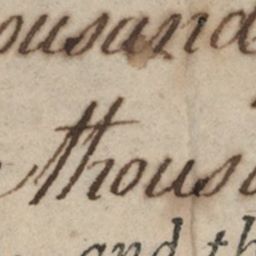 ousand
thous
and th